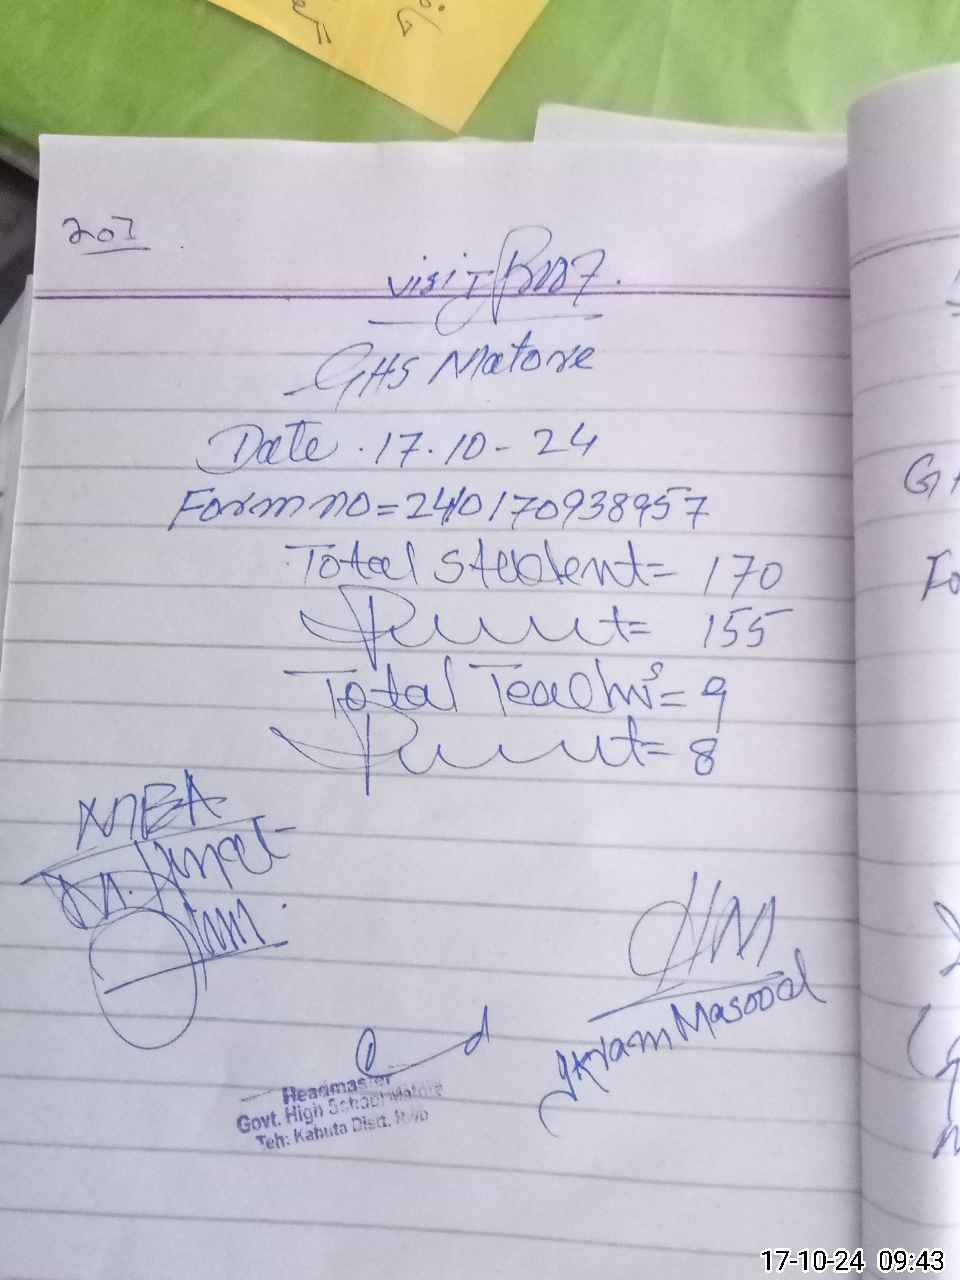 207
visit Book
GHS Matore
Date . 17.10-24
Form no = 240170938957
Total student = 170
Present = 155
Total Teachers = 9
Present = 8
MEA
HM
Ikram Masood
Headmaster
Govt. High School Matore
Teh: Kahuta Distt. Rwp
17-10-24 09:43